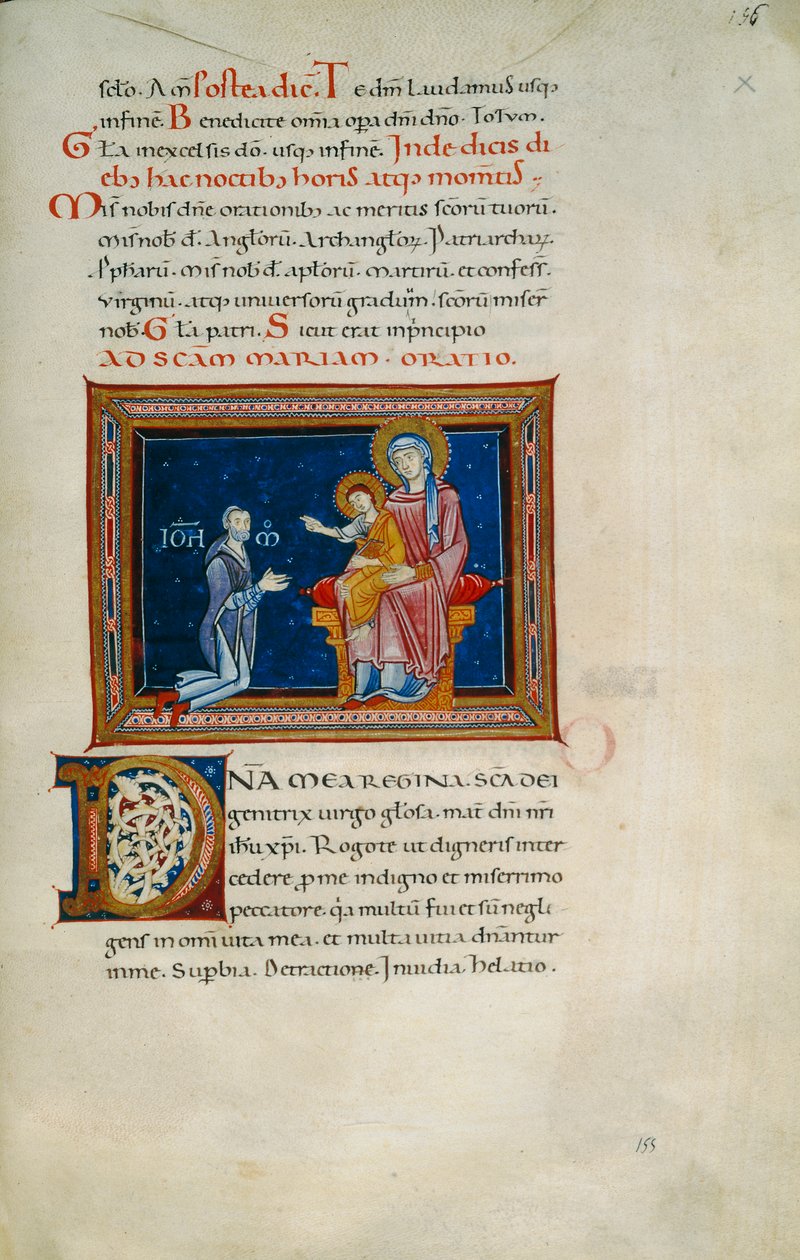 156
sc̄to. Am̄ Postea dic̄. Te dm̄ Laudamus usq;
infinē. Benedicite om̄ia op̄a dn̄i dn̄o. ToTum.
Gl̄a inexcelsis dō. usq; infinē. Inde dicis di
eb; hac noctib; horis atq; mom̄tis
Mis̄ nobis dn̄e orationib; ac meritis sc̄orū tuorū.
mis̄ nob̄ d̄. Angl̄orū. Archangl̄oꝝ. Patriarchaꝝ.
Pph̄arū. mis̄ nob̄ d̄. apl̄orū. martirū. et confess̄.
virginū. atq; uniuersorū graduum. sc̄orū miser̄
nob̄. Gl̄a patri. Sicut erat inp̄ncipio
AD SC̄AM MARIAM. ORATIO.
IOH̄ M̊
DN̄A MEA REGINA. SC̄A DEI
genitrix uirgo gl̄osa. mat̄ dn̄i nr̄i
ih̄u xp̄i. Rogo te ut digneris inter
cedere ꝓ me indigno et miserrimo
peccatore. q̇a multū fui et sū negli
gens in om̄i uita mea. et multa uitia dn̄antur
inme. Sup̄bia. Detractione. Inuidia. helatio.
155